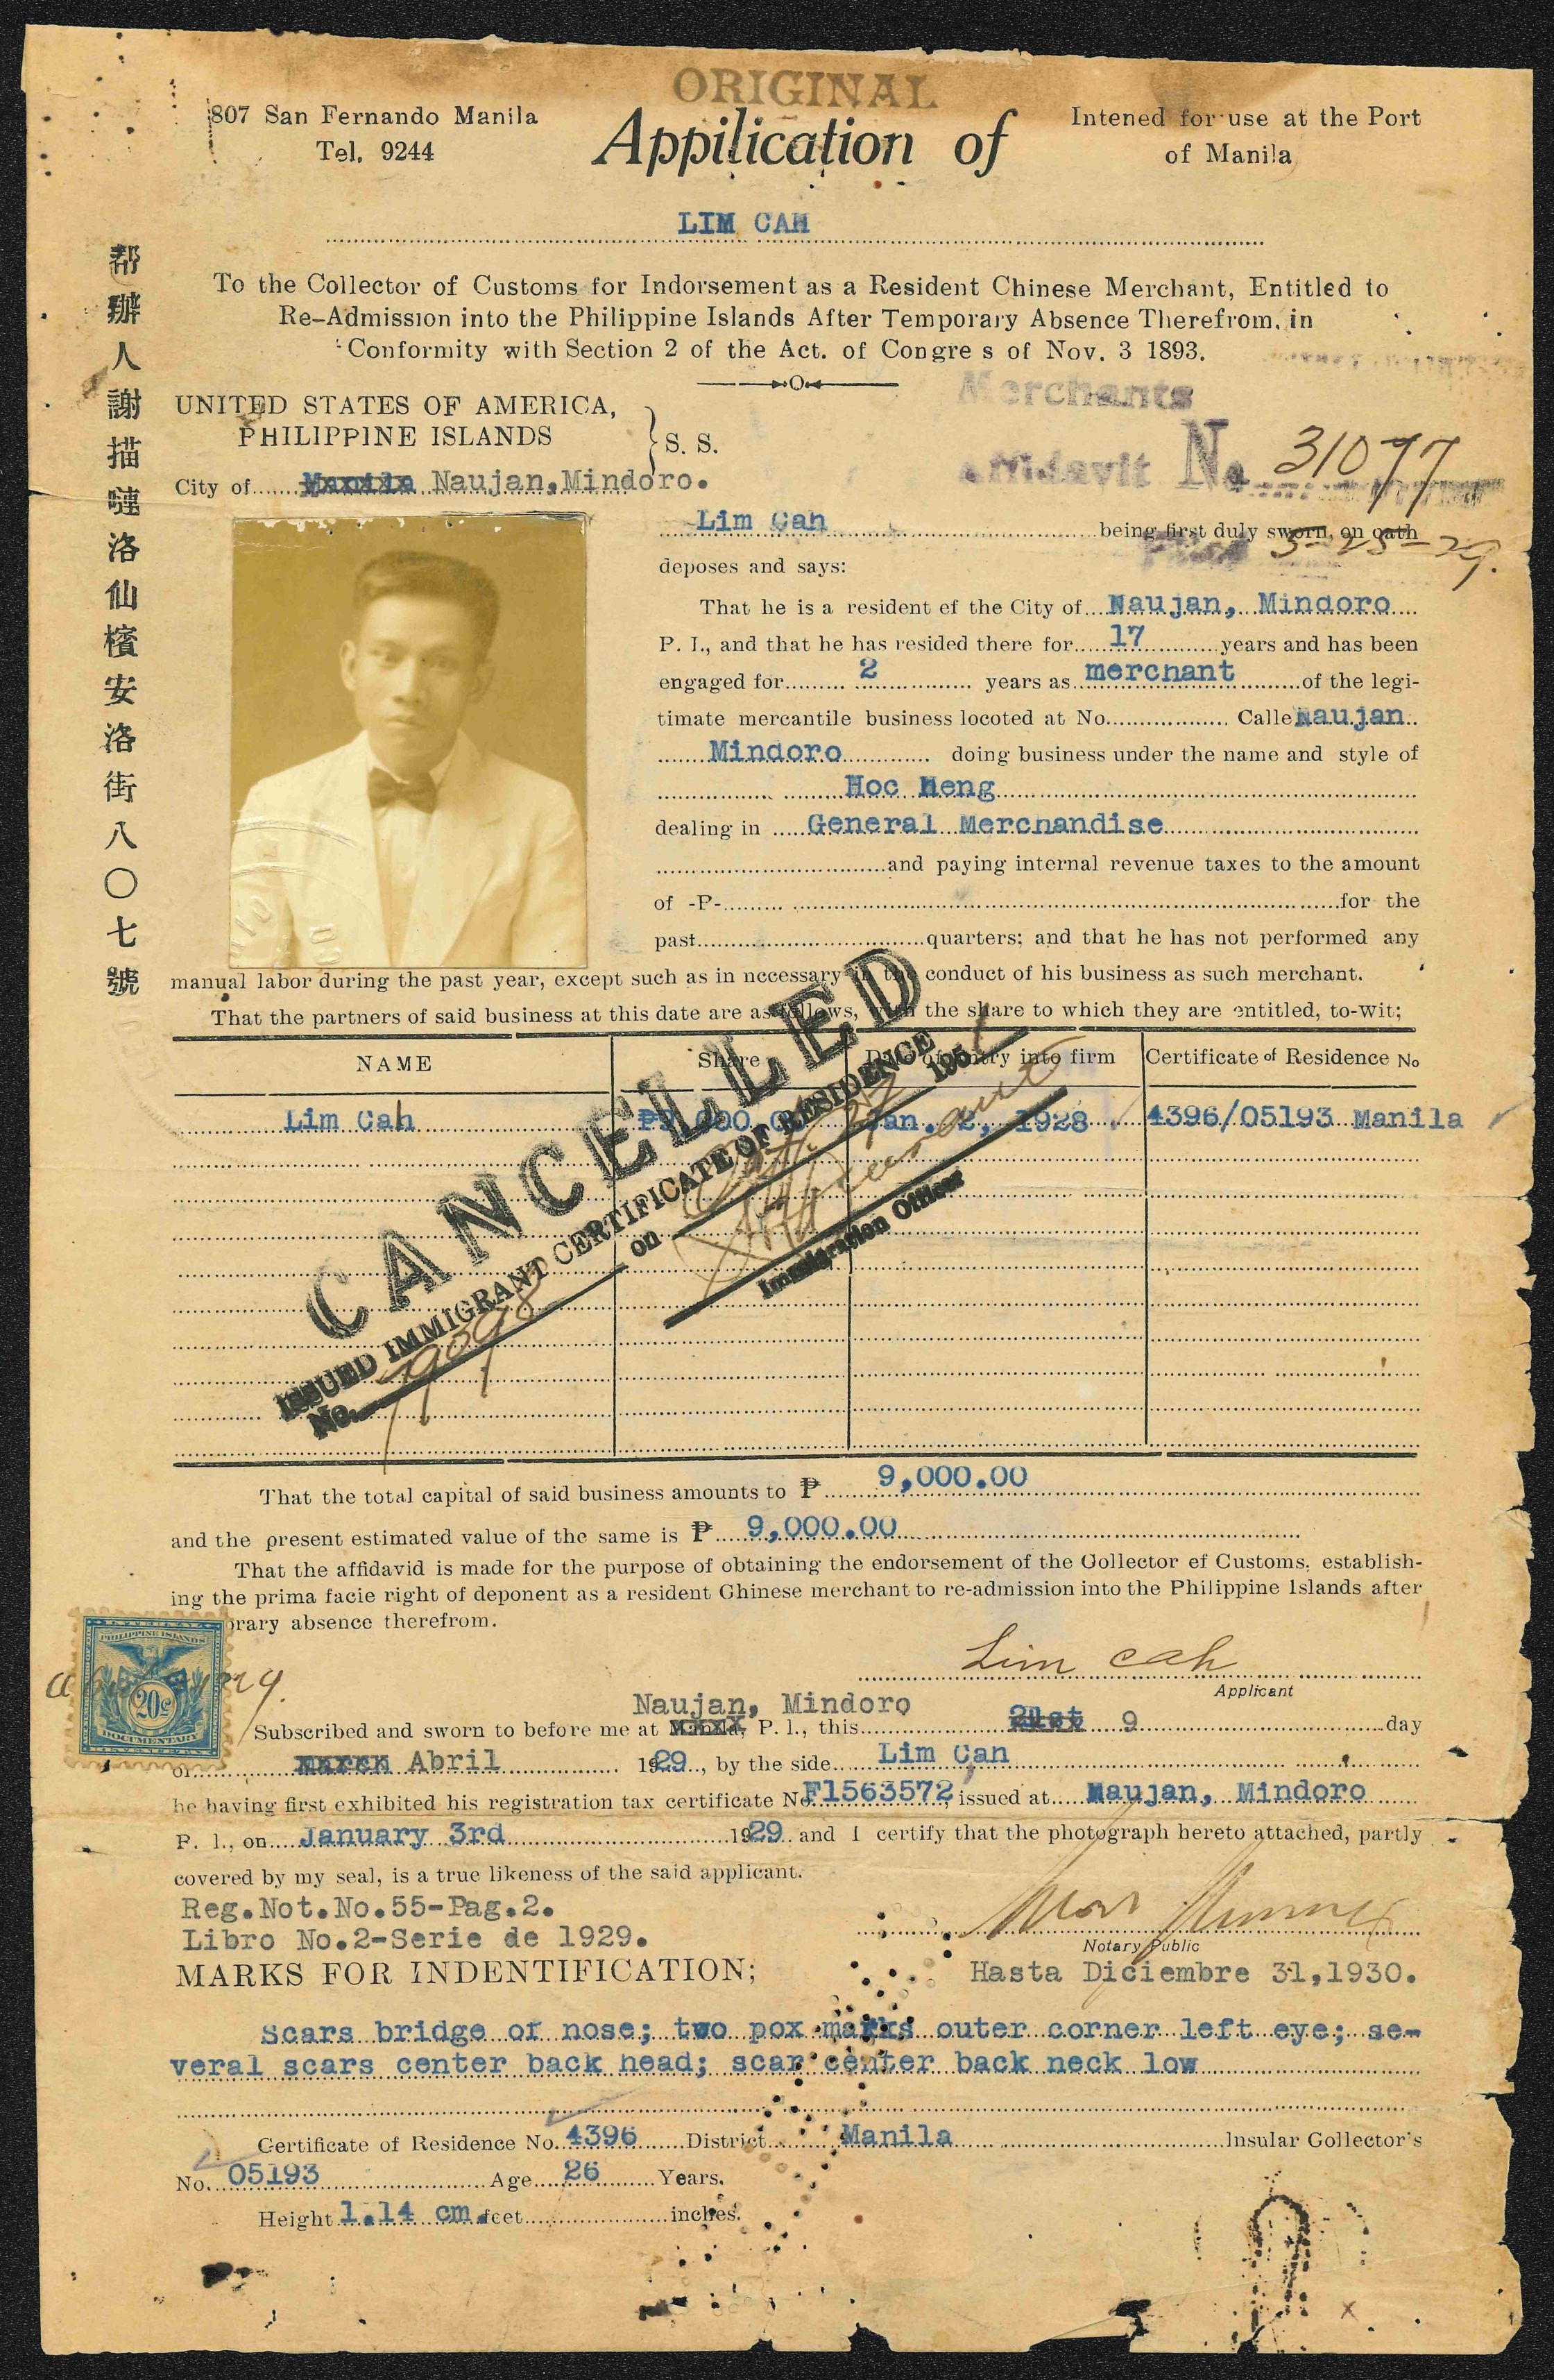 ORIGINAL
807 San Fernando Manila
Tel. 9244
Appilication of
Intened for use at the Port
of Manila
LIM CAH
To the Collector of Customs for Indorsement as a Resident Chinese Merchant, Entitled to
Re-Admission into the Philippine Islands After Temporary Absence Therefrom. in
Conformity with Section 2 of the Act. of Congre s of Nov. 3 1893.
幇辦人謝描嗹洛仙檳安洛街八〇七號
Merchants
Affidavit No 31077
UNITED STATES OF AMERICA,
PHILIPPINE ISLANDS
S. S.
City of Manila Naujan, Mindoro.
Lim Cah being first duly sworn, on oath
deposes and says:
That he is a resident ef the City of Naujan, Mindoro
P. I., and that he has resided there for 17 years and has been
engaged for 2 years as merchant of the legi-
timate mercantile business locoted at No. Calle Naujan
Mindoro doing business under the name and style of
Hoc Heng
dealing in General Merchandise
and paying internal revenue taxes to the amount
of -P- for the
past quarters; and that he has not performed any
manual labor during the past year, except such as in nccessary in the conduct of his business as such merchant.
That the partners of said business at this date are as follows, with the share to which they are entitled, to-wit;
NAME Share Date of entry into firm Certificate of Residence No
Lim Cah Jan. 2, 1928 4396/05193 Manila
CANCELLED
ISSUED IMMIGRANT CERTIFICATE OF RESIDENCE
No. on 195
Immigration Officer
That the total capital of said business amounts to ₱ 9,000.00
and the present estimated value of the same is ₱ 9,000.00
That the affidavid is made for the purpose of obtaining the endorsement of the Collector ef Customs, establish-
ing the prima facie right of deponent as a resident Chinese merchant to re-admission into the Philippine Islands after
orary absence therefrom.
PHILIPPINE ISLANDS
20c
DOCUMENTARY
Lim Cah
Applicant
Naujan, Mindoro
Subscribed and sworn to before me at Manila, P. I., this 21st 9 day
of March Abril 1929, by the side Lim Cah
he having first exhibited his registration tax certificate No. F1563572, issued at Naujan, Mindoro
P. I., on January 3rd 1929 and I certify that the photograph hereto attached, partly
covered by my seal, is a true likeness of the said applicant.
Reg.Not.No.55-Pag.2.
Libro No.2-Serie de 1929.
Notary Public
Hasta Diciembre 31,1930.
MARKS FOR INDENTIFICATION;
Scars bridge of nose; two pox marks outer corner left eye; se-
veral scars center back head; scar center back neck low
Certificate of Residence No. 4396 District Manila Insular Collector's
No. 05193 Age 26 Years.
Height 1.14 cm. feet inches.